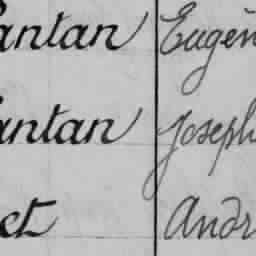 antan Eugèn
antan Joseph
et Andr